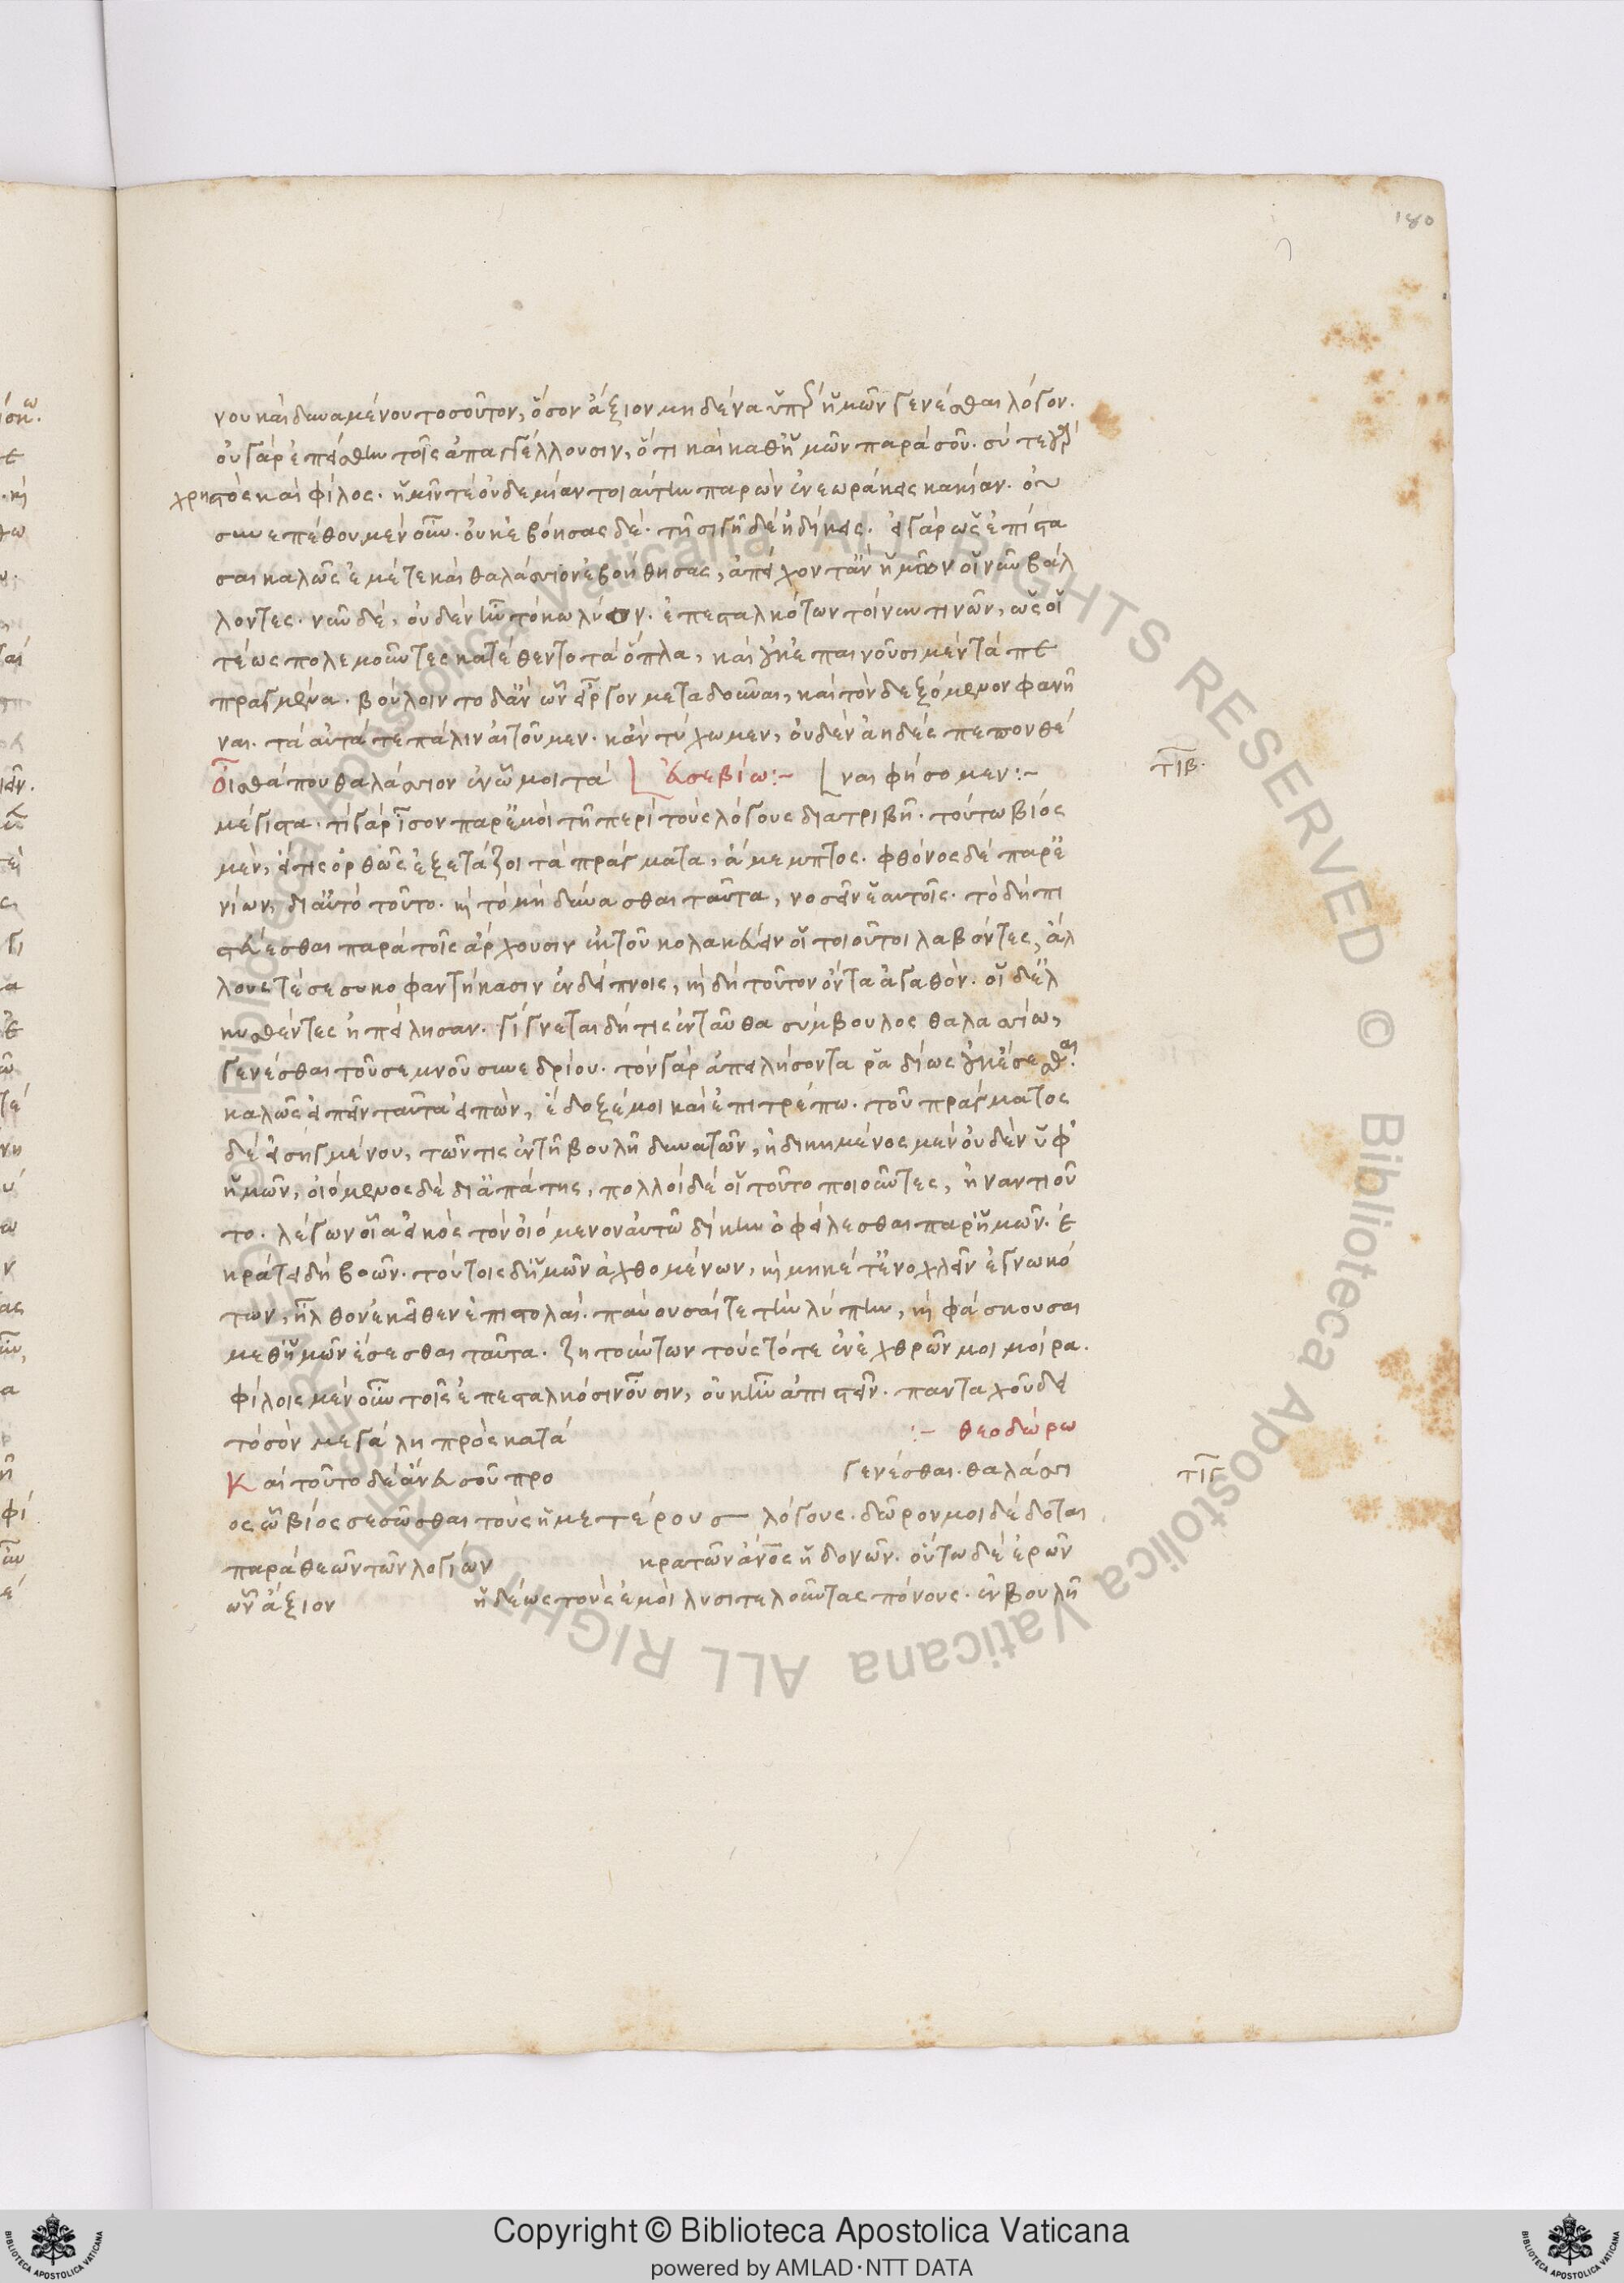 180
νου καὶ δυναμένου τοσοῦτον, ὅσον ἄξιον μηδένα ὑπὲρ ἡμῶν γενέσθαι λόγον.
οὐ γὰρ ἐπείσθην τοῖς ἀπαγγέλλουσιν, ὅτι καὶ καθ' ἡμῶν παρὰ σοῦ. σύ τε γὰρ
χρηστὸς καὶ φίλος. ἡμῖν τε οὐδεμίαν τοιαύτην παρὼν ἐνεωράκεις κακίαν. οὐ
συνεπείθου μὲν οὖν. οὐκ ἐβόησας δέ. τῇ σιγῇ δὲ ἠδίκεις. εἰ γὰρ ὡς ἐπίστα
σαι καλῶς ἐμέ τε καὶ θαλάσσιον ἐβοήθησας, ἀπείχοντ' ἂν ἡμῶν οἱ νῦν βάλ
λοντες. νῦν δέ, οὐδὲν ἦν τὸ κωλύον. ἐπεσταλκότων τοίνυν τινῶν, ὡς οἱ
τέως πολεμοῦντες κατέθεντο τὰ ὅπλα, καὶ οὐκ ἐπαινοῦσι μὲν τὰ πε
πραγμένα. βούλοιντο δ' ἂν ὧν εἶργον μεταδοῦναι, καὶ τὸν δεξόμενον φανῆ
ναι. τὰ αὐτά τε πάλιν αἰτοῦμεν. κἂν τύχωμεν, οὐδὲν ἀηδὲς πεπονθέ
Οἶσθά που θαλάσσιον ἐν ᾧ μοι τὰ Εὐσεβίω:– ναι φήσομεν:– τιβ.
μέγιστα. τί γὰρ ἴσον παρ' ἐμοὶ τῇ περὶ τοὺς λόγους διατριβῇ. τούτω βίος
μέν, εἴ τις ὀρθῶς ἐξετάζοι τὰ πράγματα, ἄμεμπτος. φθόνος δὲ παρ' ἐ
νίων, δι' αὐτὸ τοῦτο. καὶ τὸ μὴ δύνασθαι ταῦτα, νοσεῖν ἑαυτοῖς. τὸ δὴ πι
στεύεσθαι παρὰ τοῖς ἄρχουσιν ἐκ τοῦ κολακεύειν οἱ τοιοῦτοι λαβόντες, ἄλ
λους τέ σε συκοφαντήκασιν ἐν δείπνοις, καὶ δὴ τοῦτον ὄντα ἀγαθόν. οἱ δ' ἑλ
κυσθέντες ἠπείλησαν. γίγνεται δή τις ἐνταῦθα σύμβουλος θαλασσίω,
γενέσθαι τοῦ σεμνοῦ συνεδρίου. τὸν γὰρ ἀπειλήσοντα ῥαδίως οὐκ ἔσεσθαι.
καλῶς εἰπεῖν ταῦτα εἰπών, ἔδοξέ μοι καὶ ἐπιτρέπω. τοῦ πράγματος
δὲ εἰσηγμένου, τῶν τις ἐν τῇ βουλῇ δυνατῶν, ἠδικημένος μὲν οὐδὲν ὑφ'
ἡμῶν, οἰόμενος δὲ δι' ἀπάτης, πολλοὶ δὲ οἱ τοῦτο ποιοῦντες, ἠναντιοῦ
το. λέγων οἷα εἰκὸς τὸν οἰόμενον αὐτῷ δίκην ὀφείλεσθαι παρ' ἡμῶν. ἐ
κράτει δὴ βοῶν. τούτοις δ' ἡμῶν ἀχθομένων, καὶ μηκέτ' ἐνοχλεῖν ἐγνωκό
των, ἦλθον ἐκεῖθεν ἐπιστολαί. παύουσαί τε τὴν λύπην, καὶ φάσκουσαι
μεθ' ἡμῶν ἔσεσθαι ταῦτα. ζητούντων τοὺς τότε ἐν ἐχθρῶν μοι μοίρα.
φίλοις μὲν οὖν τοῖς ἐπεσταλκόσιν οὖσιν, οὐκ ἦν ἀπιστεῖν. πανταχοῦ δὲ
τόσον μεγάλη πρὸς κατὰ :– θεοδώρω
Καὶ τοῦτο δὲ ἂν εὐ σοῦ προ γενέσθαι. θαλάσσι τιγ
ος ᾧ βίος σεσῶσθαι τοὺς ἡμετέρους λόγους. δῶρόν μοι δέδοται
παρὰ θεῶν τῶν λογίων κρατῶν ἄνθρωπος ἡδονῶν. οὕτω δὲ ἐρῶν
ὧν ἄξιον ἡδέως τοὺς ἐμοὶ λυσιτελοῦντας πόνους. ἐν βουλῇ
Copyright © Biblioteca Apostolica Vaticana
powered by AMLAD·NTT DATA